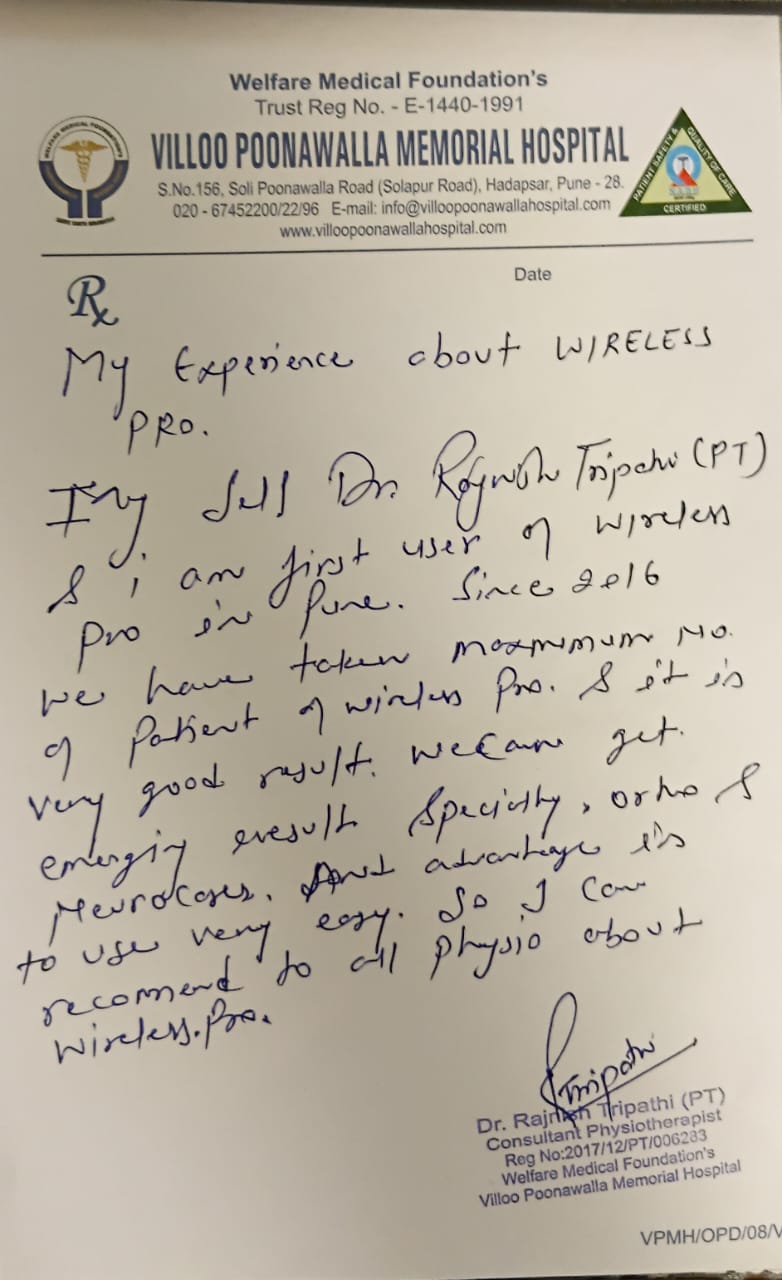 Welfare Medical Foundation's
Trust Reg No. - E-1440-1991
VILLOO POONAWALLA MEMORIAL HOSPITAL
S.No.156, Soli Poonawalla Road (Solapur Road), Hadapsar, Pune - 28.
020 - 67452200/22/96 E-mail: info@villoopoonawallahospital.com
www.villoopoonawallahospital.com
WELFARE MEDICAL FOUNDATION'S
PATIENT SAFETY & QUALITY OF CARE
CERTIFIED
Date
Rx
My Experience about WIRELESS
PRO.
Imy self Dr. Rajnish Tripathi (PT)
& i am first user of wireless
Pro in Pune. Since 2016
we have taken maxmimum No.
of Patient of wireless Pro. & it is
very good result. we can get
emergiy result specielty, ortho &
Neurocases. And advantage is
to use very easy. So I can
recomend to all physio about
wireless.Pro.
Tripathi
Dr. Rajnish Tripathi (PT)
Consultant Physiotherapist
Reg No:2017/12/PT/006283
Welfare Medical Foundation's
Villoo Poonawalla Memorial Hospital
VPMH/OPD/08/V